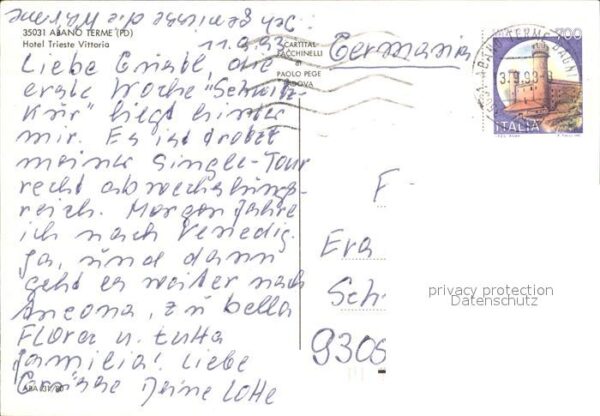 Ich genieße die Wärme
35031 ABANO TERME (PD)
Hotel Trieste Vittoria
11.9.93
Liebe Christl, die
erste Woche "Schwitz-
Kur" liegt hinter
mir. Es ist trotz
meiner Single-Tour
recht abwechslungs-
reich. Morgen fahre
ich nach Venedig.
Ja, und dann
geht es weiter nach
Ancona, zu bella
FLORA u. tutta
familia! Liebe
Grüsse Deine Lotte
CARTITAL
FACCHINELLI
di
PAOLO PEGE
PADOVA
Germania
ABANO TERME BAGNI
3.9.93
700
ITALIA
F
Eva
Sch
9306
privacy protection
Datenschutz